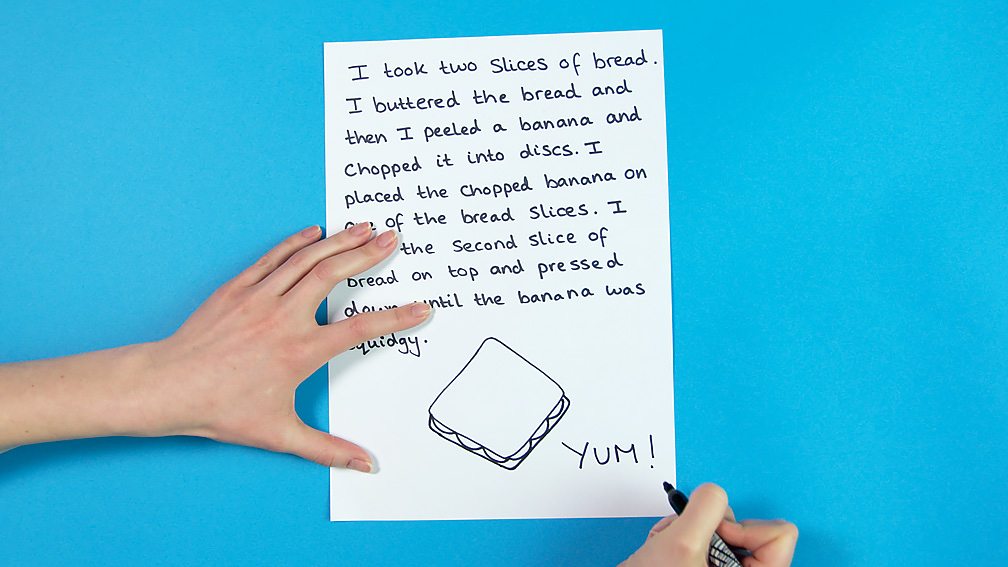 I took two slices of bread.
I buttered the bread and
then I peeled a banana and
chopped it into discs. I
placed the chopped banana on
of the bread slices. I
the second slice of
bread on top and pressed
down until the banana was
squidgy.
YUM!